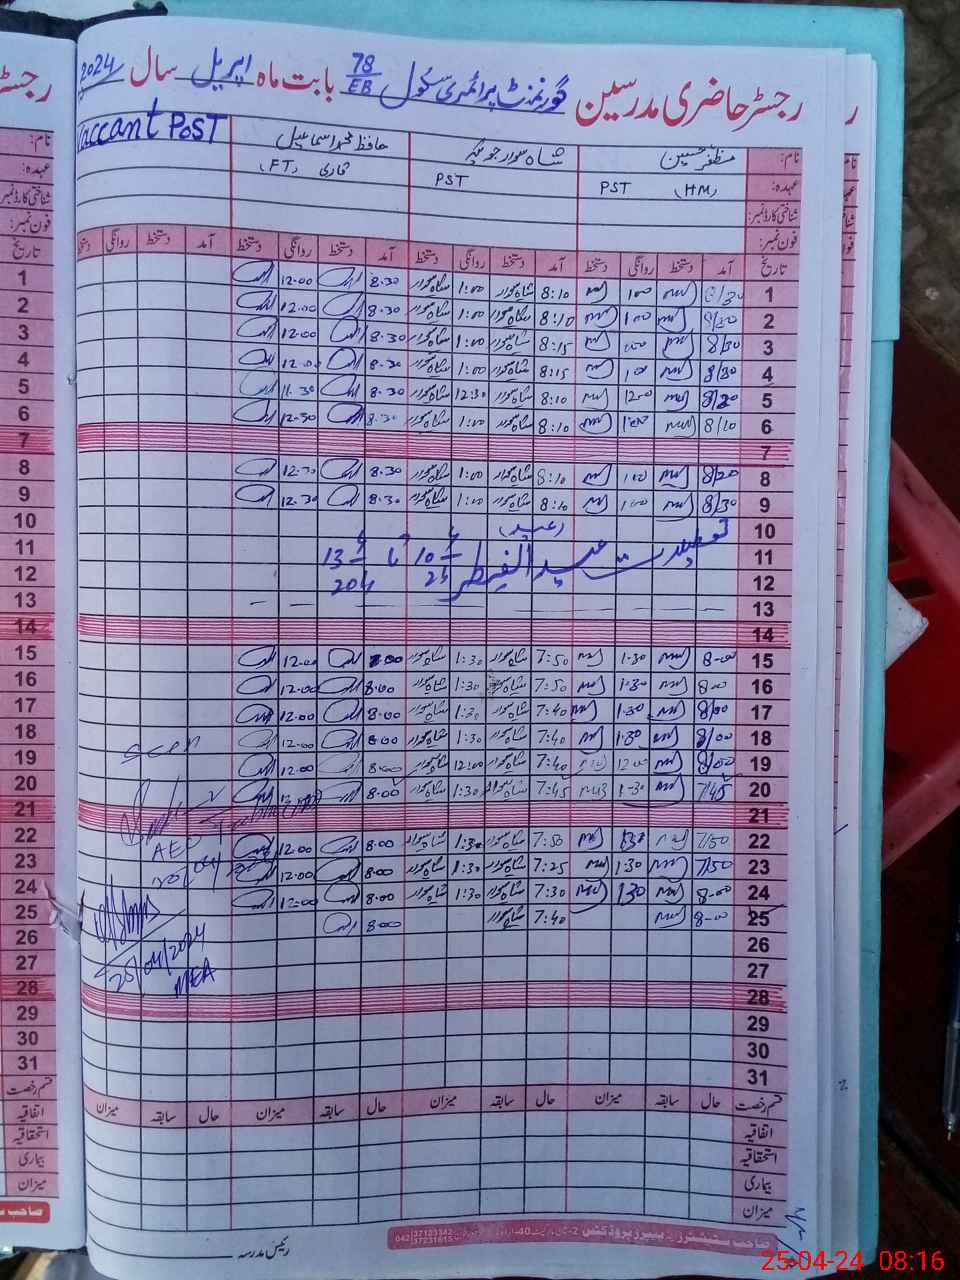 رجسٹر حاضری مدرسین گورنمنٹ پرائمری سکول 78/EB بابت ماہ اپریل سال 2024
نام: مظفر حسین شاہ سوار جوئیہ حافظ محمد اسماعیل Vaccant POST
عہدہ: PST (HM) PST قاری (FT)
شناختی کارڈ نمبر:
فون نمبر:
تاریخ آمد دستخط روانگی دستخط آمد دستخط روانگی دستخط آمد دستخط روانگی دستخط آمد دستخط روانگی دستخط
1 8/30 1:00 8:10 شاہ سوار 1:00 شاہ سوار 8.30 12.00
2 8/30 1:00 8:10 شاہ سوار 1:00 شاہ سوار 8.30 12.00
3 8/30 1:00 8:15 شاہ سوار 1:00 شاہ سوار 8.30 12.00
4 8/30 1:00 8:15 شاہ سوار 1:00 شاہ سوار 8.30 12.00
5 8/30 1200 8:10 شاہ سوار 12:30 شاہ سوار 8.30 11.30
6 8/10 1:00 8:10 شاہ سوار 1:00 شاہ سوار 8.30 12.30
7
8 8/20 1:00 8:10 شاہ سوار 1:00 شاہ سوار 8.30 12.30
9 8/30 1:00 8:10 شاہ سوار 1:00 شاہ سوار 8.30 12.30
10 (عید)
11 تعطیلات عید الفطر 10 4 تا 13 4
12 24 204
13
14
15 8-00 1-30 7:50 شاہ سوار 1:30 شاہ سوار 12.00
16 8-00 1-30 7:50 شاہ سوار 1:30 شاہ سوار 8.00 12.00
17 8/00 1-30 7:40 شاہ سوار 1:30 شاہ سوار 8.00 12.00
18 8/00 1-30 7:40 شاہ سوار 1:30 شاہ سوار 8.00 12.00
19 8/00 12-00 7:40 شاہ سوار 12:00 شاہ سوار 8.00 12.00
20 7/45 1-30 7:45 شاہ سوار 1:30 شاہ سوار 8.00
21
22 7/50 1-30 7:30 شاہ سوار 1:30 شاہ سوار 8.00 12.00
23 7/50 1-30 7:25 شاہ سوار 1:30 شاہ سوار 8.00 12.00
24 8-00 1-30 7:30 شاہ سوار 1:30 شاہ سوار 8.00 12.00
25 8-00 7:40 شاہ سوار 8.00
26
27
28
29
30
31
seen
AEO
25/04/2024
MEA
قسم رخصت حال سابقہ میزان حال سابقہ میزان حال سابقہ میزان حال سابقہ میزان
اتفاقیہ
استحقاقیہ
بیماری
میزان
صاحب سٹیشنرز اینڈ پیپرز پروڈکٹس
رئیس مدرسہ
25-04-24 08:16